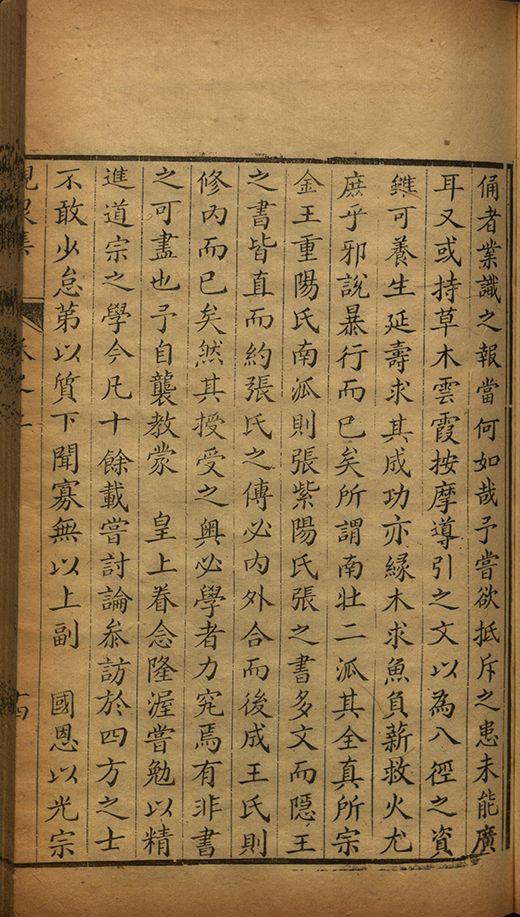 俑者業識之報當何如哉予嘗欲抵斥之患未能廣
耳又或持草木雲霞按摩導引之文以為入徑之資
雖可養生延壽求其成功亦緣木求魚負薪救火尤
庶乎邪說暴行而已矣所謂南北二派其全真所宗
金王重陽氏南派則張紫陽氏張之書多文而隱王
之書皆直而約張氏之傳必內外合而後成王氏則
修內而已矣然其授受之奧必學者力究焉有非書
之可盡也予自襲教蒙　皇上眷念隆渥嘗勉以精
進道宗之學今凡十餘載嘗討論叅訪於四方之士
不敢少怠第以質下聞寡無以上副　國恩以光宗
峴泉集　卷之一